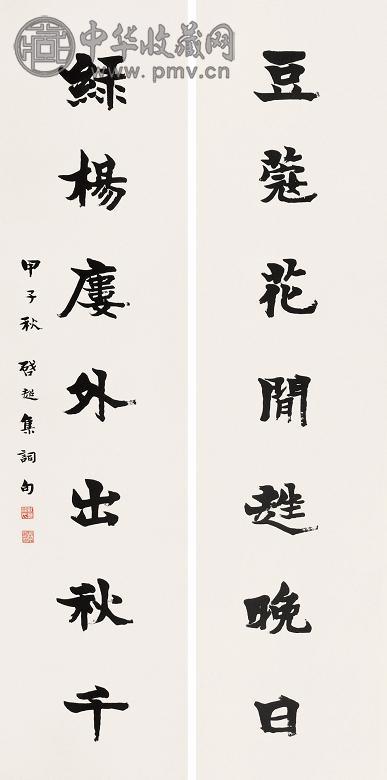 中华收藏网
www.pmv.cn
豆蔻花間趖晚日
緑楊廔外出秋千
甲子秋 啓超集詞句